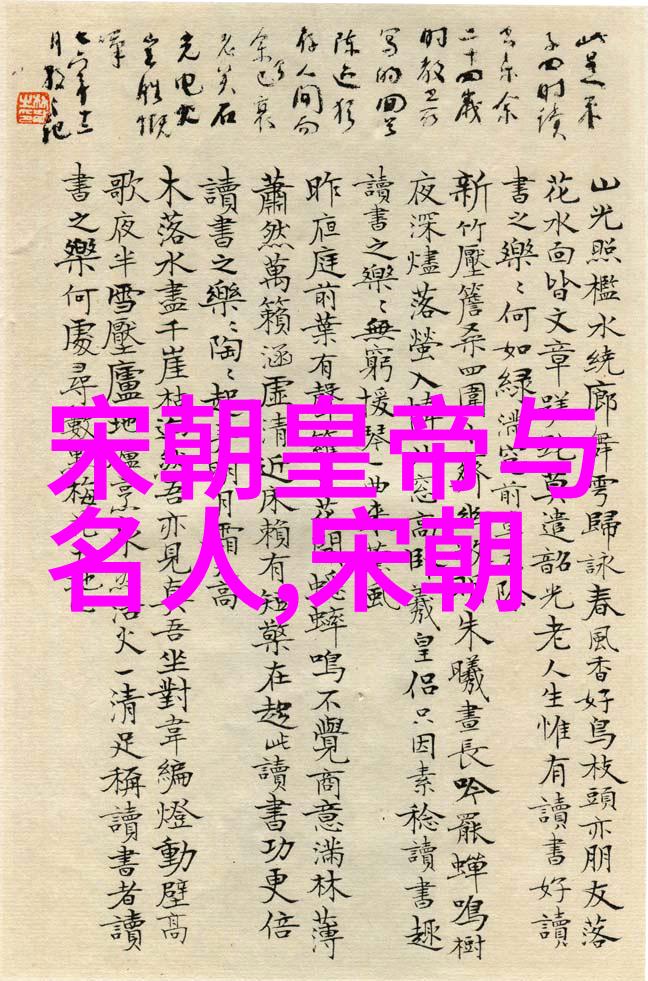 此是
四时读
二十四岁
陈迹犹
存人间而
余已衰
老矣石
光电火
岂胜慨
山光照檻水繞廊舞雩歸詠春風香好鳥枝頭亦朋友落
花水面皆文章莫遣韶光老人生惟有讀書好讀
書之樂〻何如綠滿窗前草除
新竹壓簷桑四圍朱曦晝長吟罷蟬鳴樹
夜深燼落螢入幃窗高臥羲皇侶只因素稔讀書趣
讀書之樂〻無窮援琴一曲來薰風
昨夜庭前葉有聲籬花開蟋蟀鳴不覺商意滿林薄
蕭然萬籟涵虛清近床賴有短檠在趁此讀書功更倍
讀書之樂〻陶〻起弄明月霜天高
木落水盡千崖枯迥然吾亦見真吾坐對韋編燈動壁高
歌夜半雪壓廬地爐烹活火一清足稱讀書者讀
書之樂何處尋數點梅花天地
宋朝皇帝与
名人,宋朝